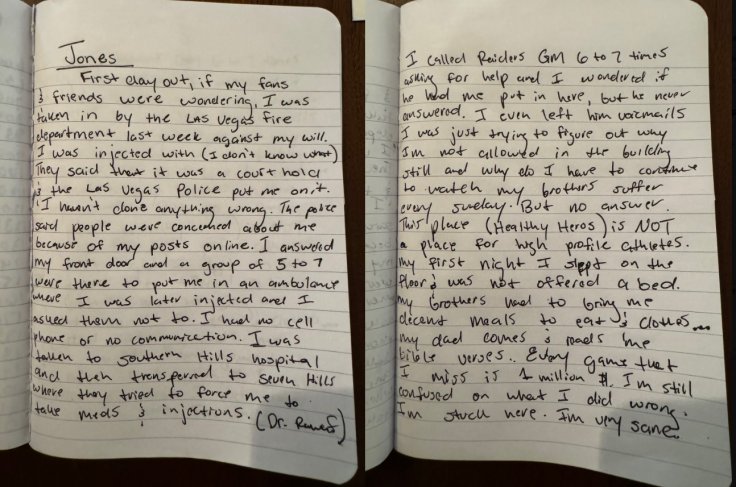 Jones
First day out, if my fans
& friends were wondering, I was
taken in by the Las Vegas fire
department last week against my will.
I was injected with (I don't know what)
They said that it was a court hold
& the Las Vegas Police put me on it.
I haven't done anything wrong. The police
said people were concerned about me
because of my posts online. I answered
my front door and a group of 5 to 7
were there to put me in an ambulance
where I was later injected and I
asked them not to. I had no cell
phone or no communication. I was
taken to southern Hills hospital
and then transferred to Seven Hills
where they tried to force me to
take meds & injections. (Dr.
I called Raiders GM 6 to 7 times
asking for help and I wondered if
he had me put in here, but he never
answered. I even left him voicemails
I was just trying to figure out why
I'm not allowed in the building
still and why do I have to continue
to watch my brothers suffer
every sunday. But no answer.
This place (Healthy Heros) is NOT
a place for high profile athletes.
my first night I slept on the
floor & was not offered a bed.
my brothers had to bring me
decent meals to eat & clothes...
my dad comes & reads me
bible verses. Every game that
I miss is 1 million $. I'm still
confused on what I did wrong.
I'm stuck here. I'm very sane.